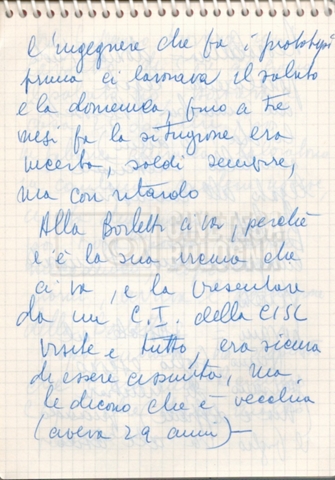 l'ingegnere che fa i prototipi
prima ci lavorava il sabato
e la domenica, fino a tre
mesi fa la situazione era
incerta, soldi sempre,
ma con ritardo
Alla Borletti ci va, perché
c'è la sua vicina che
ci va, e la presentare
da un C.I. della CISL
visite e tutto, era sicura
di essere assunta, ma
le dicono che è vecchia
(aveva 29 anni)-